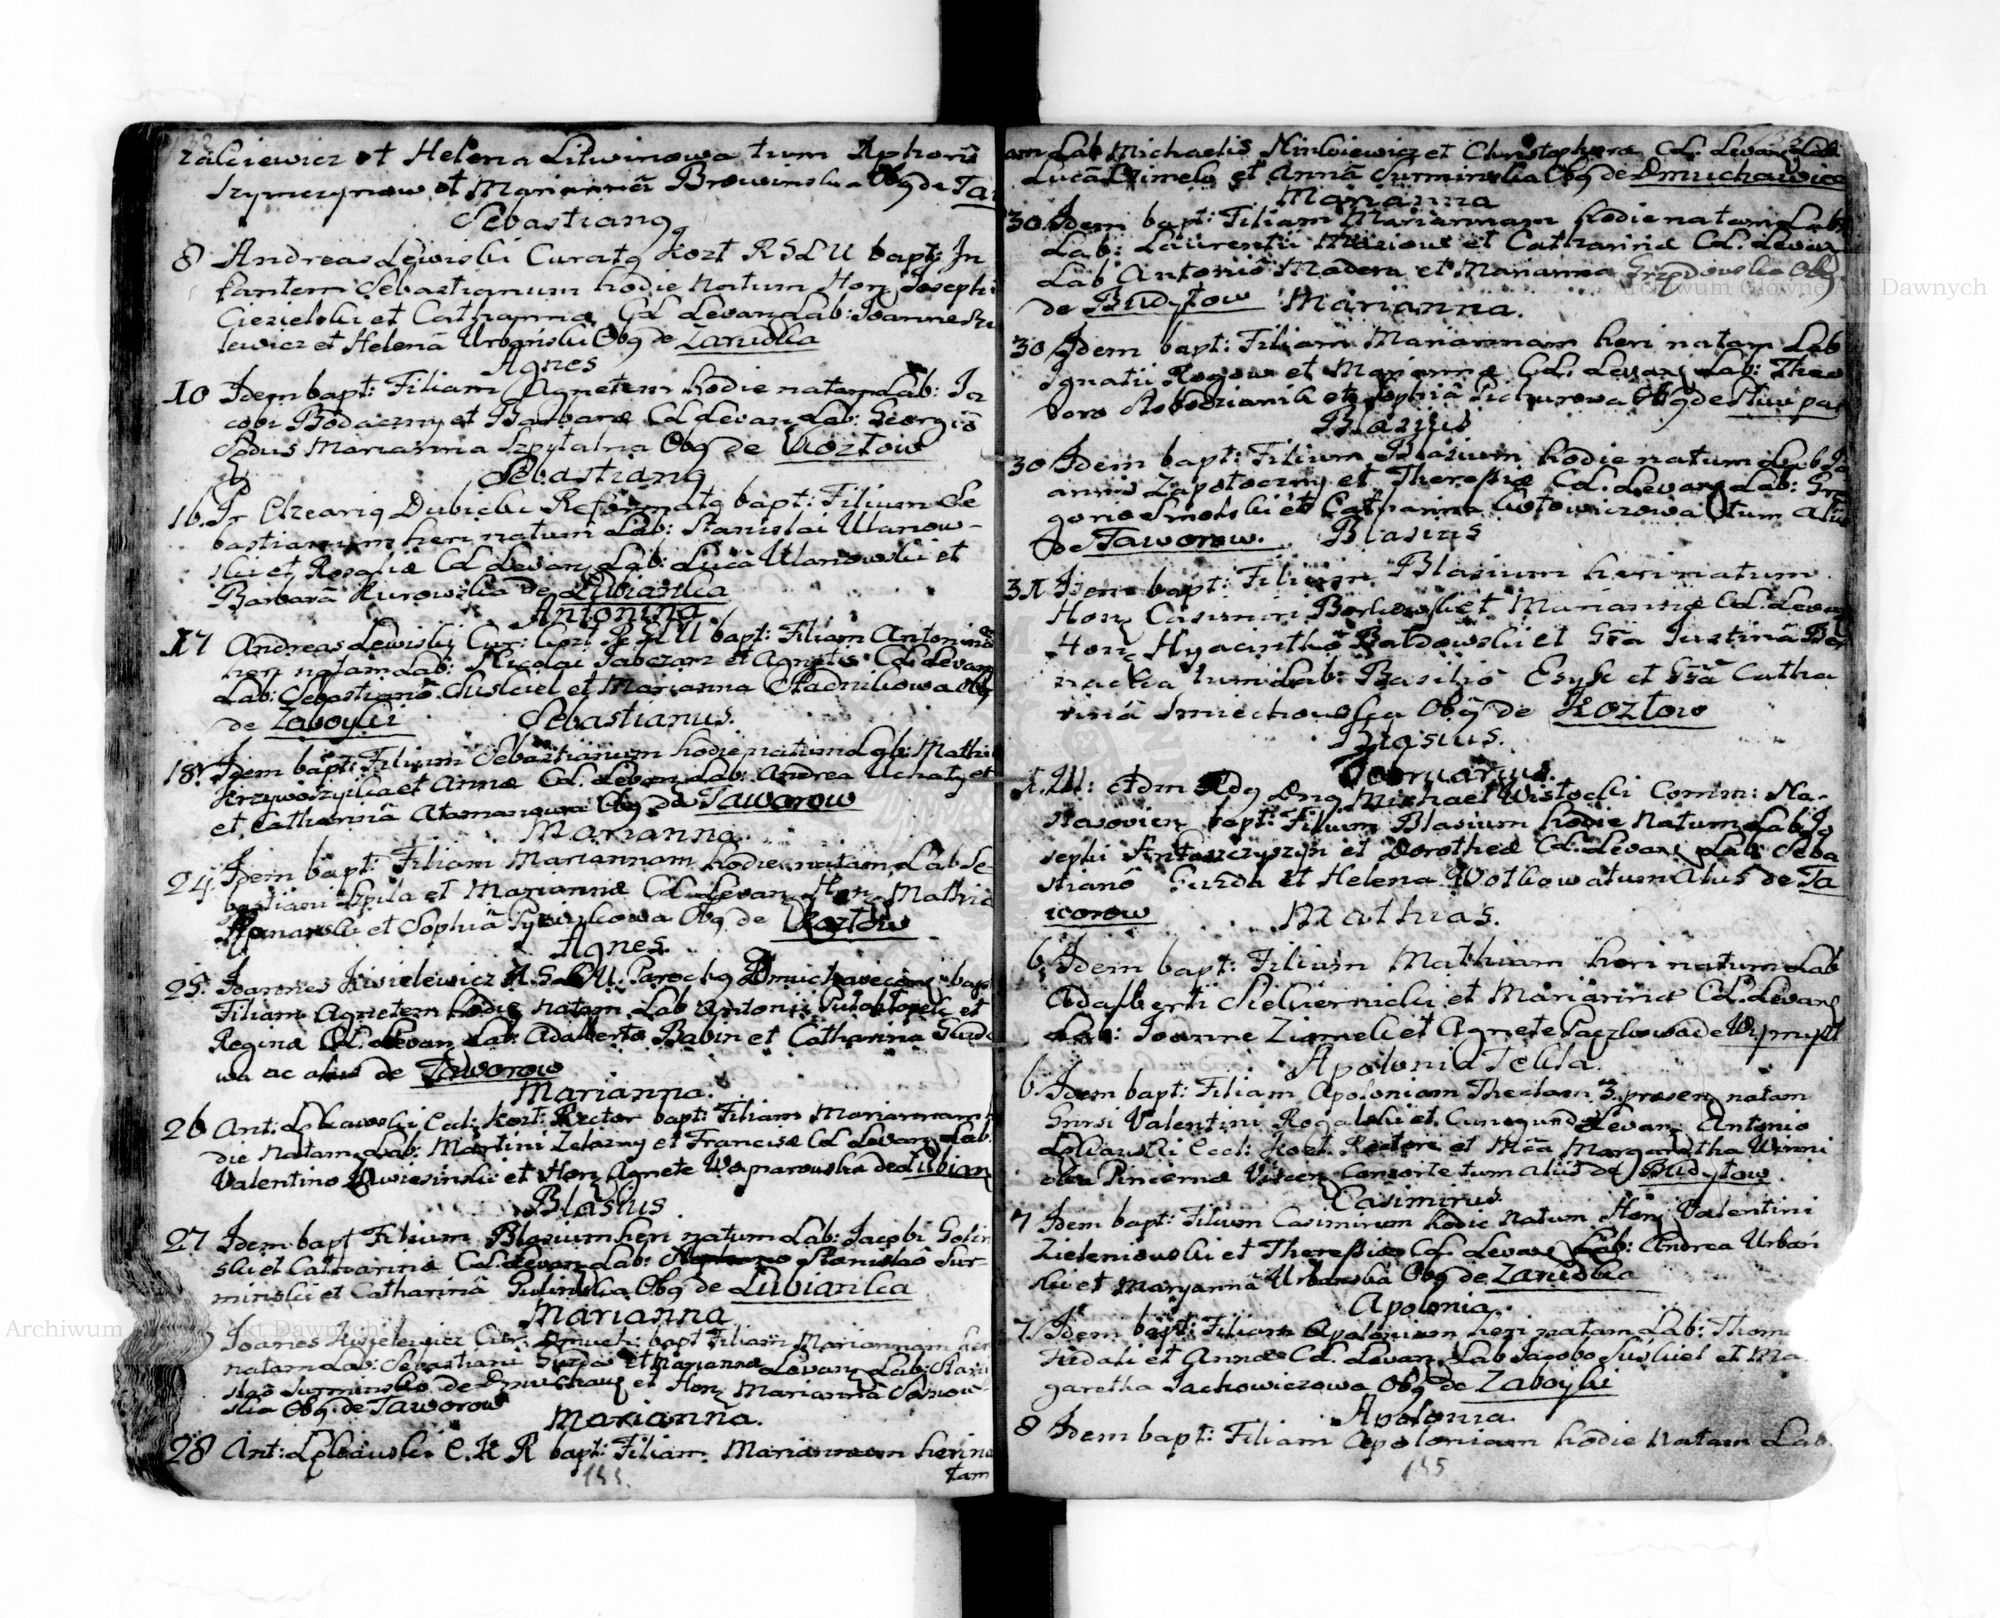 zalciewicz et Helena Litwinowa tum Alphons
Szymczynow et Marianna Browinska Obg de Ta
Sebastiang
8 Andreas Lewiski Curatg Kozt RSLU bapt: In
fantem Sebastianum hodie natum Hon Josephi
Ciezielski et Catharinæ CL Levan Lab: Joanne
lewicz et Helenā Urbański Obg de Zarudka
Agnes
10 Idem bapt: Filiam Agnetem hodie natam Lab: Ja
cobi Bodaczny et Barbaræ CL Levan Lab: Georgiō
Dodus Marianna Szpytalna Obg de Kozłow
Sebastiang
16. Dubicki Reformatg bapt: Filium Se
bastianum heri natum Lab: Stanislai Ulanow-
ski et Rosaliæ CL Levan Lab: Lucā Ulanowski et
Barbarā Kurowska de Lubianka
Antonina
17 Andreas Lewiski Cur: Kozt RSLU bapt: Filiam Antoninā
heri natam Lab: Nicolai et Agnetis CL Levan
Lab: Sebastianō Suskiel et Marianna Obg
de Zaboyki Sebastianus.
18. Idem bapt: Filium Sebastianum hodie natum Lab: Mathi
Krzywoszycka et Annæ CL. Levan Lab: Andrea Uchatg et
et Catharinā Atamanowa Obg de Taworow
Marianna
24. Idem bapt: Filiam Mariannam hodie natam Lab Se
bastiani Szpila et Mariannæ CL. Levan Hon Mathia
et Sophiā Obg de Kozłow
Agnes.
25. Joannes Kisielewicz RSLU. Parochg Dmuchavecens bapt
Filiam Agnetem hodie natam Lab Antonii et
Reginæ CL. Levan Lab: Adalberto Babin et Catharina
wa ac aliis de Taworow
Marianna.
26 Ant: Lokawski Ecl: Kozt: Rector bapt: Filiam Mariannam h
die natam Lab: Martini Zelazny et Franciscæ CL Levan Lab.
Valentino et Hon Agnete de Lubian
Blasius
27 Idem bapt Filium Blasium heri natum Lab: Jacobi Golin
ski et Catharinæ CL. Levan Lab: Stanislaō Sur-
minski et Catharinā Golinska Obg de Lubianka
Marianna
Joanes Kisielewicz Cur: Dmuch: bapt Filiam Mariannam heri
natam Lab: Sebastiani et Mariannæ Levan Lab: Stani
slaō Surminskio de Dmuchawc et Hon Mariannā Sosnow-
ska Obg. de Taworow
Marianna.
28 Ant: Lokawski E. K R bapt: Filiam. Mariannam heri na
tam
155.
am Lab Michaelis Minkiewicz et Christophoræ CL. Levan Lab
Lucā et Annā Surminska Obg de Dmuchawiec
Marianna
30. Idem bapt: Filiam Mariannam hodie natam Lab
Lab: Laurentii Maziow et Catharinæ CL. Levan
Lab Antoniō Madera et Marianna Obg
de Budyłow Marianna.
30 Idem bapt: Filiam Mariannam heri natam Lab
Ignatii Rogow et Mariannæ CL. Levan Lab: Theo
doro et Sophiā Pichurowa Obg de
Blasius
30 Idem bapt: Filium Blasium hodie natum Lab Jo
annis Zapotoczny et Theresiæ CL. Levan Lab: Gre
gorio Smolski et Catharina Kotowiczowa tum aliis
de Taworow. Blasius
31 Idem bapt: Filium Blasium heri natum
Hon Casimiri Borkowski et Mariannæ CL. Levan
Hon Hyacinthō Bałdowski et Gsā Justinā Ber
nacka tum Lab: Basiliō Esyk et Gsā Catha
rinā Smiechowska Obg de Kozłow
Blasius.
Februarius.
1. Ill: Adm Rdg Dng Michael Wisłocki Comm: Na-
stasovien bapt: Filium Blasium hodie natum Lab Jo
sephi Antoszczyszyn et Dorotheæ CL. Levan Lab: Seba
stianō Guzda et Helena Wołkowa tum aliis de Ta
worow Mathias.
6. Idem bapt: Filium Mathiam heri natum Lab
Adalberti Siekiernicki et Mariannæ CL. Levan
Lab: Joanne Ziomek et Agnete Paczkowa de
Apolonia Tekla.
6. Idem bapt: Filiam Apoloniam Theclam 3. presen natam
Gnrsi Valentini Rogalski et Cunegundæ Levan Antonio
Lokawski Eccl: Kozt Rectore et Mcā Margaretha Winni
cka Pincernæ Viscen Consorte tum aliis de Budyłow.
Casimirus.
7 Idem bapt: Filium Casimirum hodie natum Hon Valentini
Zieleniowski et Theresiæ CL. Levan Lab: Andrea Urbań
ski et Maryannā Urbanska Obg de Zarudka
Apolonia.
7. Idem bapt: Filiam Apoloniam heri natam Lab: Thom
Fedali et Annæ CL. Levan Lab Jacobo Suskiel et Ma
garetha Jachowiczowa Obg de Zaboyki
Apolonia.
8 Idem bapt: Filiam Apoloniam hodie natam Lab.
155
Archiwum Główne Akt Dawnych
Archiwum Główne Akt Dawnych